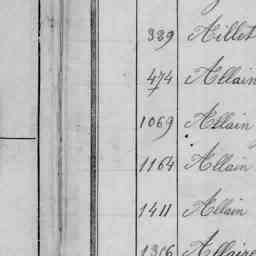 389 Aillet
474 Allain
1069 Allain
1164 Allain
1411 Allain
1316 Allaire